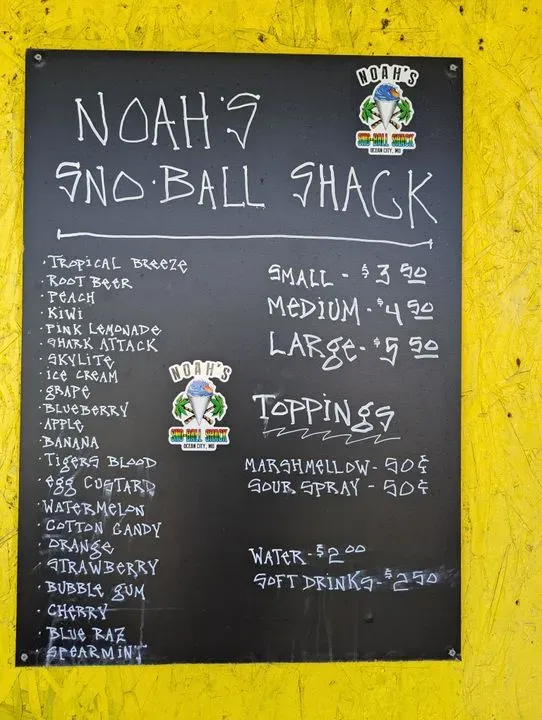 NOAH'S
SNO-BALL SHACK
OCEAN CITY, MD
NOAH'S
SNO·BALL SHACK
· TROPICAL BREEZE
· ROOT BEER
· PEACH
· KIWI
· PINK LEMONADE
· SHARK ATTACK
· SKYLITE
· ICE CREAM
· GRAPE
· BLUEBERRY
· APPLE
· BANANA
· TIGERS BLOOD
· EGG CUSTARD
· WATERMELON
· COTTON CANDY
· ORANGE
· STRAWBERRY
· BUBBLE GUM
· CHERRY
· BLUE RAZ
· SPEARMINT
NOAH'S
SNO-BALL SHACK
OCEAN CITY, MD
SMALL - $3 50
MEDIUM - $4 50
LARGE - $5 50
TOPPINGS
MARSHMELLOW - 50¢
SOUR SPRAY - 50¢
WATER - $2 00
SOFT DRINKS - $2 50